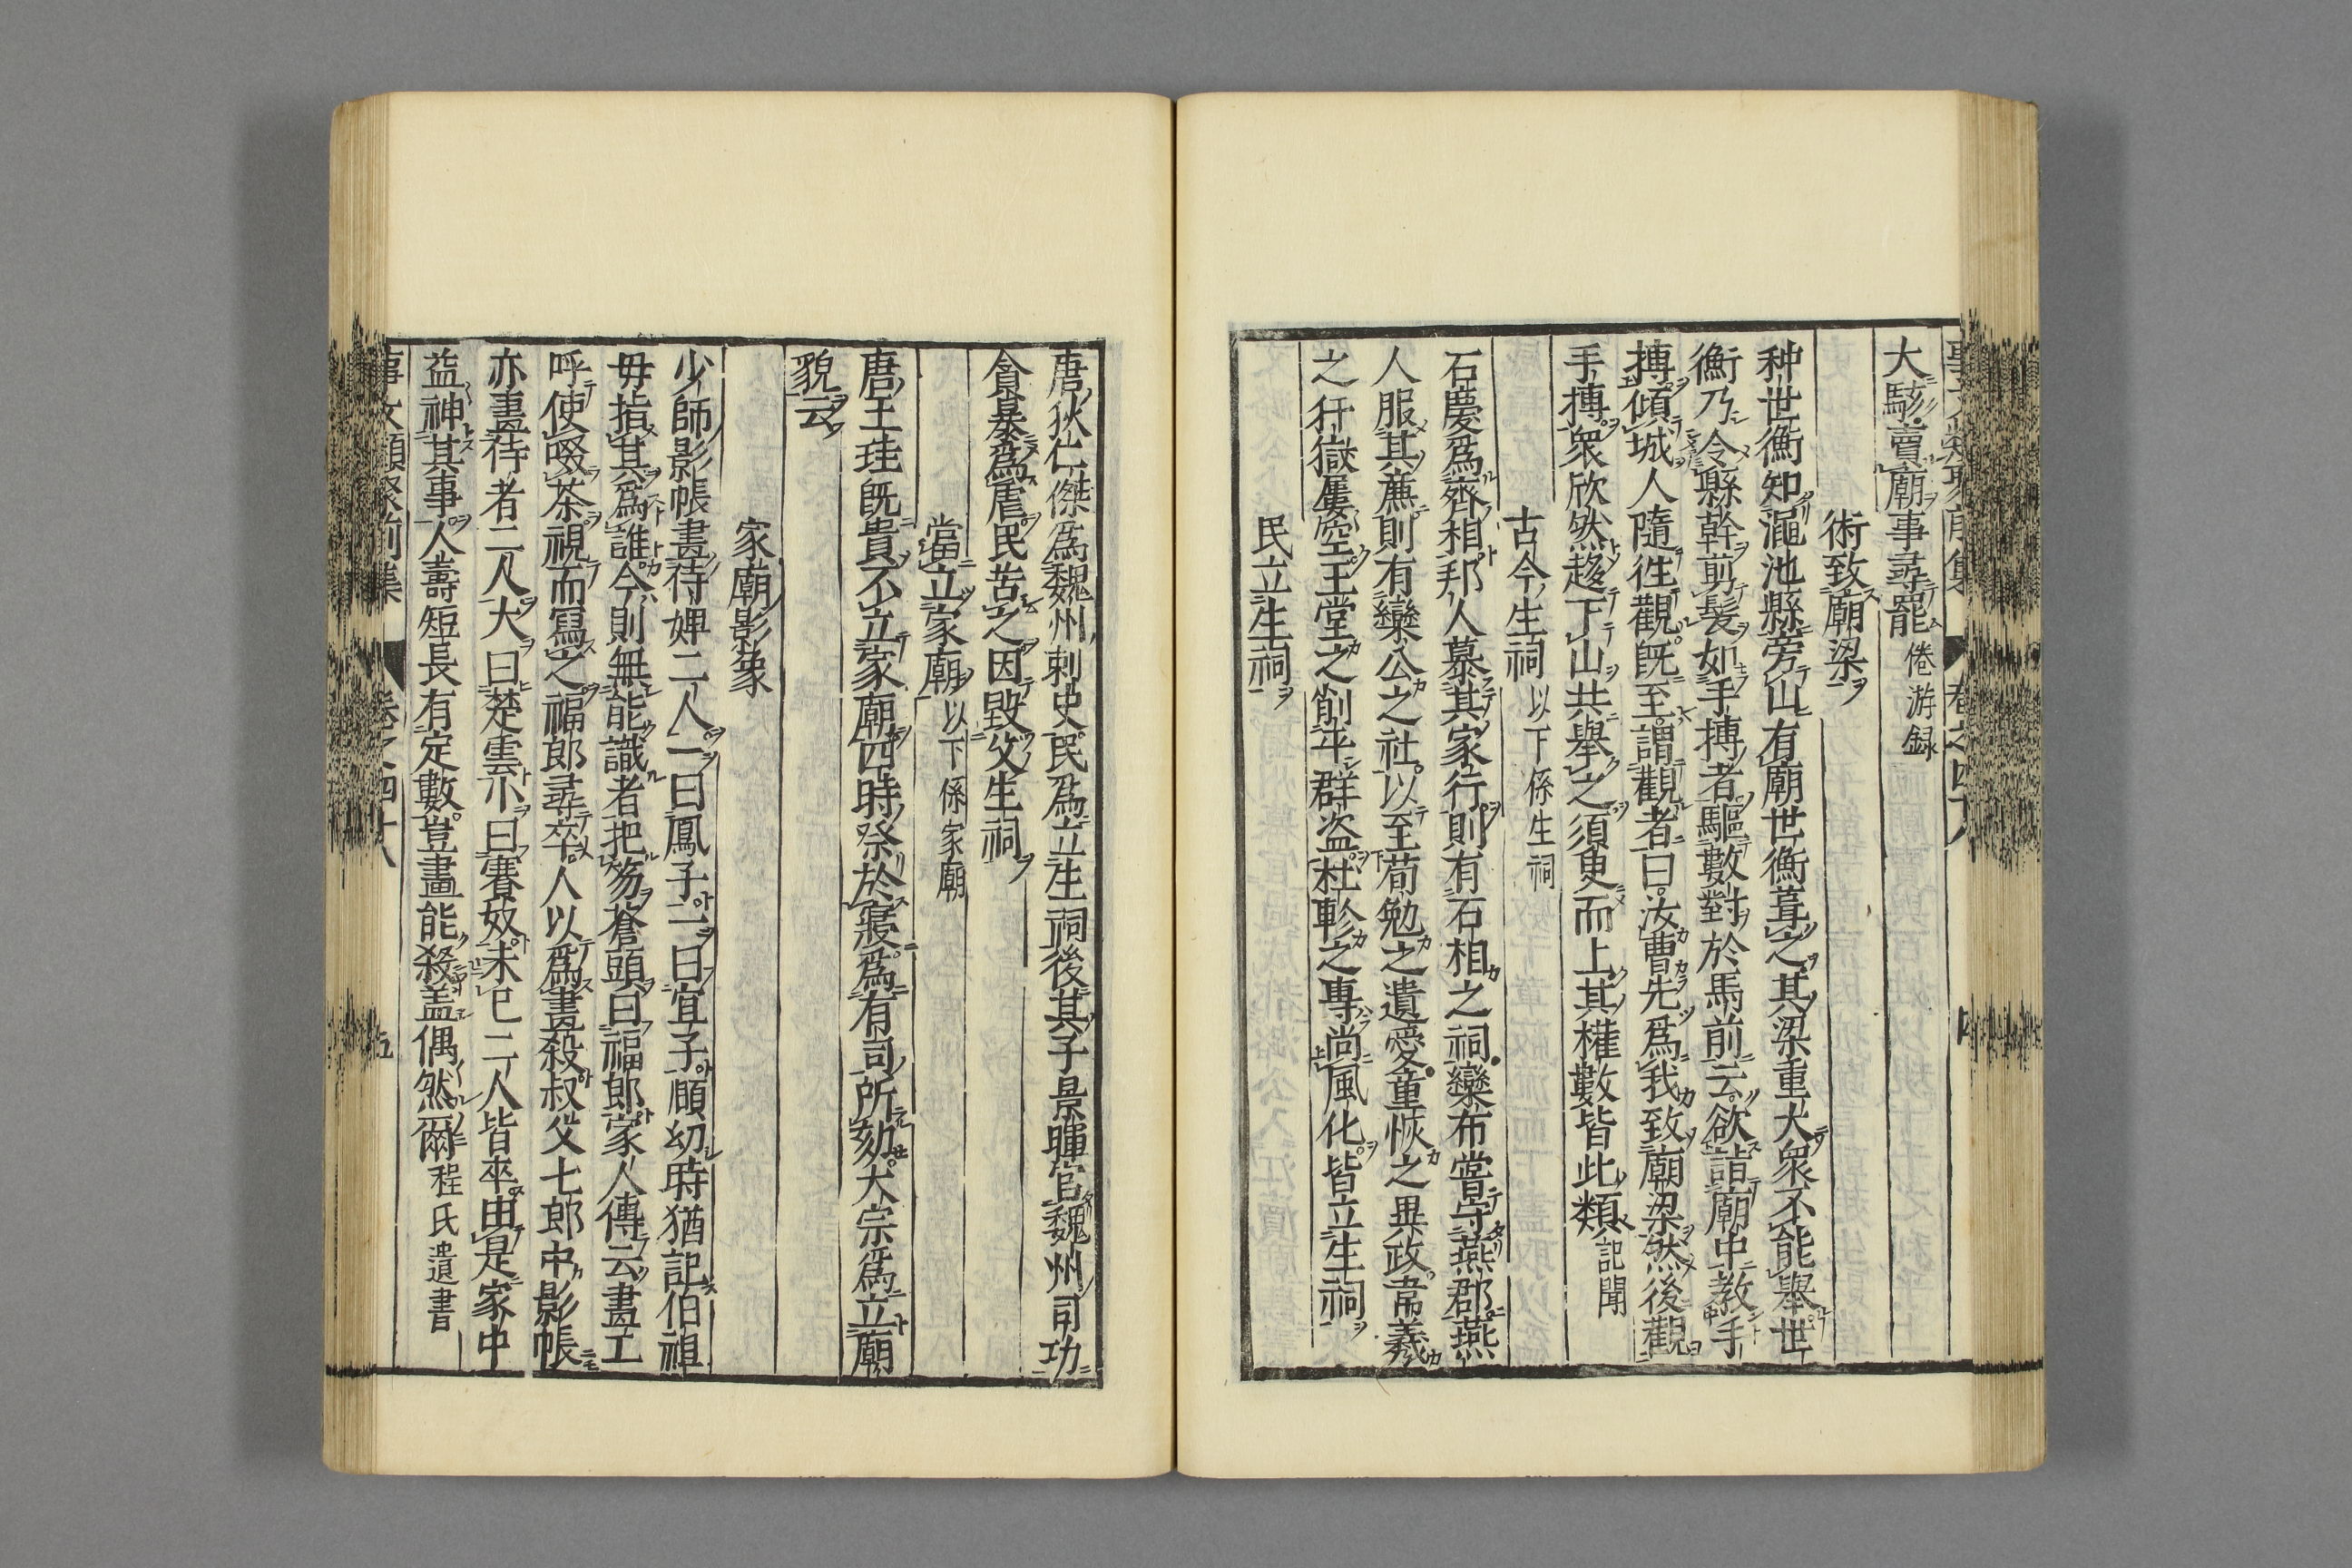 大駭賣廟事尋罷倦游録
術致廟梁
种世衡知澠池縣旁山有廟世衡葺之其梁重大衆不能舉世
衡乃令縣幹剪髪如手搏者驅數對於馬前云欲詣廟中教手
搏傾城人隨徃觀既至謂觀者曰汝曹先爲我致廟梁然後觀
手搏衆欣然趍下山共舉之須臾而上其權數皆此類記聞
古今生祠以下係生祠
石慶爲齊相邦人慕其家行則有石相之祠欒布嘗守燕郡燕
人服其㢘則有欒公之社以至荀勉之遺愛童恢之異政韋義
之犴獄屢空王堂之削平群盗杜軫之專尚風化皆立生祠
民立生祠
唐狄仁傑爲魏州刺史民爲立生祠後其子景暉官魏州司功
貪暴爲虐民苦之因毀父生祠
當立家廟以下係家廟
唐王珪既貴不立家廟四時祭於寢爲有司所劾太宗爲立廟
貌云
家廟影象
少師影帳畫侍婢二人一曰鳳子一曰宜子頤幼時猶記伯祖
毋指其爲誰今則無能識者把笏蒼頭曰福郎家人傳云畫工
呼使啜茶視而寫之福郎尋卒人以爲畫殺叔父七郎中影帳
亦畫侍者二人大曰楚雲小曰賽奴未已二人皆卒由是家中
益神其事人壽短長有定數豈畫能殺盖偶然爾程氏遺書
事文類聚前集 卷之四十八 五